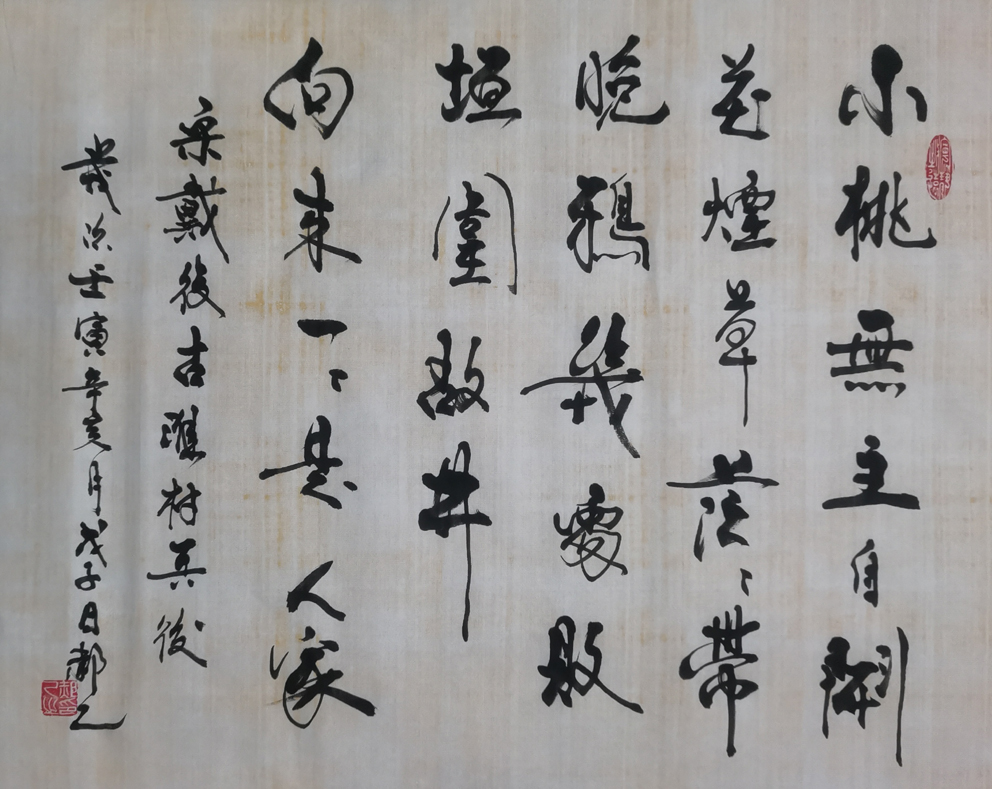 小桃無主自開
花煙草茫〻帶
晚鴉幾處敗
垣圍故井
向來一〻是人家
宋戴復古淮村兵後
歲次壬寅辛亥月戊子日郝